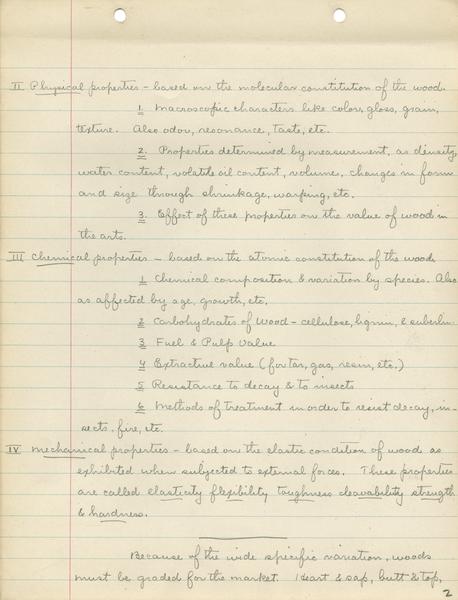 II Physical properties - based on the molecular constitution of the wood.
1. Macroscopic characters like color, gloss, grain,
texture. Also odor, resonance, taste, etc.
2. Properties determined by measurement, as density,
water content, volatile oil content, volume, changes in form
and size through shrinkage, warping, etc.
3. Effect of these properties on the value of wood in
the arts.
III Chemical properties - based on the atomic constitution of the wood.
1 Chemical composition & variation by species. Also
as affected by age, growth, etc.
2 Carbohydrates of Wood - cellulose, lignin, & suberin.
3 Fuel & Pulp Value
4 Extractive value (for tar, gas, resin, etc.)
5 Resistance to decay & to insects
6 Methods of treatment in order to resist decay, in-
sects, fire, etc.
IV Mechanical properties - based on the elastic condition of wood as
exhibited when subjected to external forces. These properties
are called elasticity flexibility toughness cleavability strength
& hardness.
Because of the wide specific variation, woods
must be graded for the market. Heart & sap, butt & top,
2